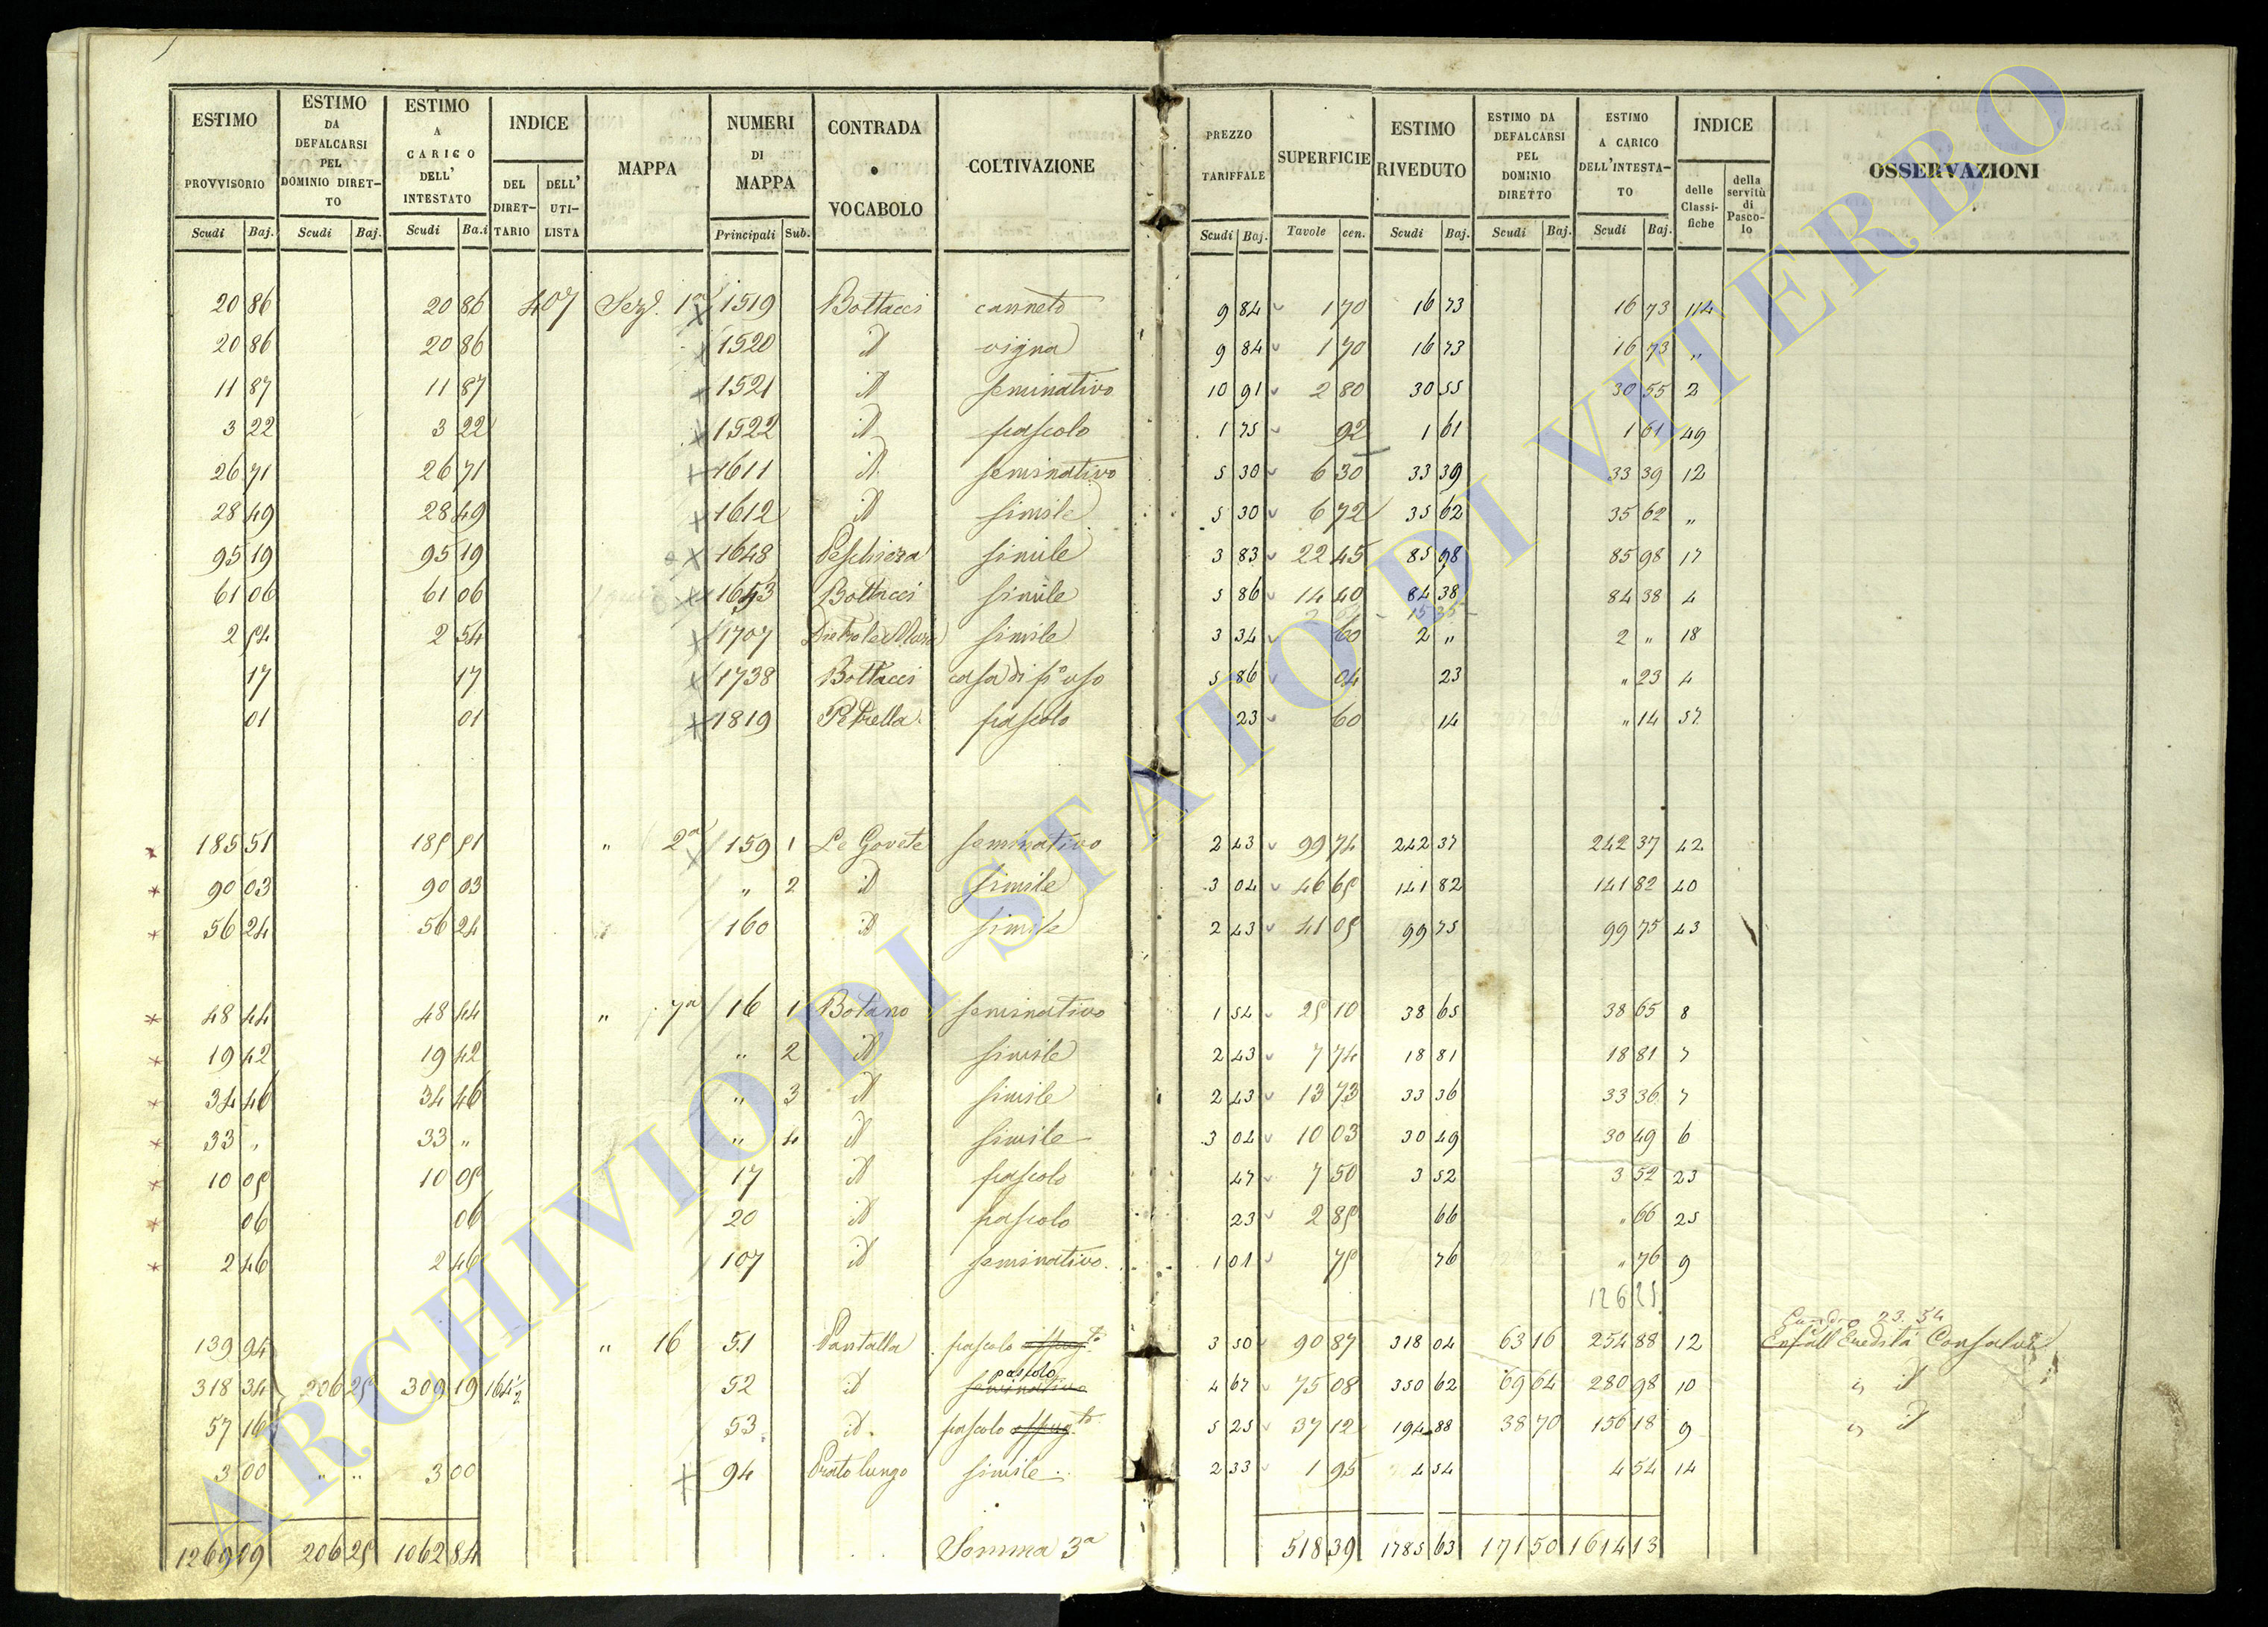 ESTIMO PROVVISORIO Scudi Baj.
ESTIMO DA DEFALCARSI PEL DOMINIO DIRET-TO Scudi Baj.
ESTIMO A CARICO DELL' INTESTATO Scudi Ba.i
INDICE DEL DIRET-TARIO DELL' UTI-LISTA
MAPPA
NUMERI DI MAPPA Principali Sub.
CONTRADA o VOCABOLO
COLTIVAZIONE
PREZZO TARIFFALE Scudi Baj.
SUPERFICIE Tavole cen.
ESTIMO RIVEDUTO Scudi Baj.
ESTIMO DA DEFALCARSI PEL DOMINIO DIRETTO Scudi Baj.
ESTIMO A CARICO DELL'INTESTA-TO Scudi Baj.
INDICE delle Classi-fiche della servitù di Pasco-lo
OSSERVAZIONI
20 86 20 86 407 Sez.e 1a 1519 Bottacci canneto 9 84 1 70 16 73 16 73 114
20 86 20 86 1520 id vigna 9 84 1 70 16 73 16 73 "
11 87 11 87 1521 id seminativo 10 91 2 80 30 55 30 55 2
3 22 3 22 1522 id pascolo 1 75 92 1 61 1 61 49
26 71 26 71 1611 id. seminativo 5 30 6 30 33 39 33 39 12
28 49 28 49 1612 id simile 5 30 6 72 35 62 35 62 "
95 19 95 19 1648 Peschiera simile 3 83 22 45 85 98 85 98 17
61 06 61 06 1653 Bottacci simile 5 86 14 40 84 38 84 38 4
2 54 2 54 1707 Dietro le Mura simile 3 34 60 2 " 2 " 18
17 17 1738 Bottacci casa di p.o uso 5 86 04 23 " 23 4
01 01 1819 Petrella pascolo 23 60 14 " 14 57
185 51 185 51 " 2a 159 1 Le Govete seminativo 2 43 99 74 242 37 242 37 42
90 03 90 03 " 2 id simile 3 04 46 65 141 82 141 82 40
56 24 56 24 160 id simile 2 43 41 05 99 75 99 75 43
48 44 48 44 " 7a 16 1 Botano seminativo 1 54 25 10 38 65 38 65 8
19 42 19 42 " 2 id simile 2 43 7 74 18 81 18 81 7
34 46 34 46 " 3 id simile 2 43 13 73 33 36 33 36 7
33 " 33 " " 4 id simile 3 04 10 03 30 49 30 49 6
10 05 10 05 17 id pascolo 47 7 50 3 52 3 52 23
06 06 20 id pascolo 23 2 85 66 " 66 25
2 46 2 46 107 id seminativo 1 01 75 76 " 76 9
126 25
139 94 " 16 51 Pantalla pascolo 3 50 90 87 318 04 63 16 254 88 12 all'Eredità Consalvi
23. 54
318 34 206 25 309 19 164½ 52 id pascolo seminativo 4 67 75 08 350 62 69 64 280 98 10 " id
57 16 53 id. pascolo 5 25 37 12 194 88 38 70 156 18 9 " id
3 00 " " 3 00 94 Prato lungo simile 2 33 1 95 4 54 4 54 14
1269 09 206 25 1062 84 Somma 3a 518 39 1785 63 171 50 1614 13
ARCHIVIO DI STATO DI VITERBO